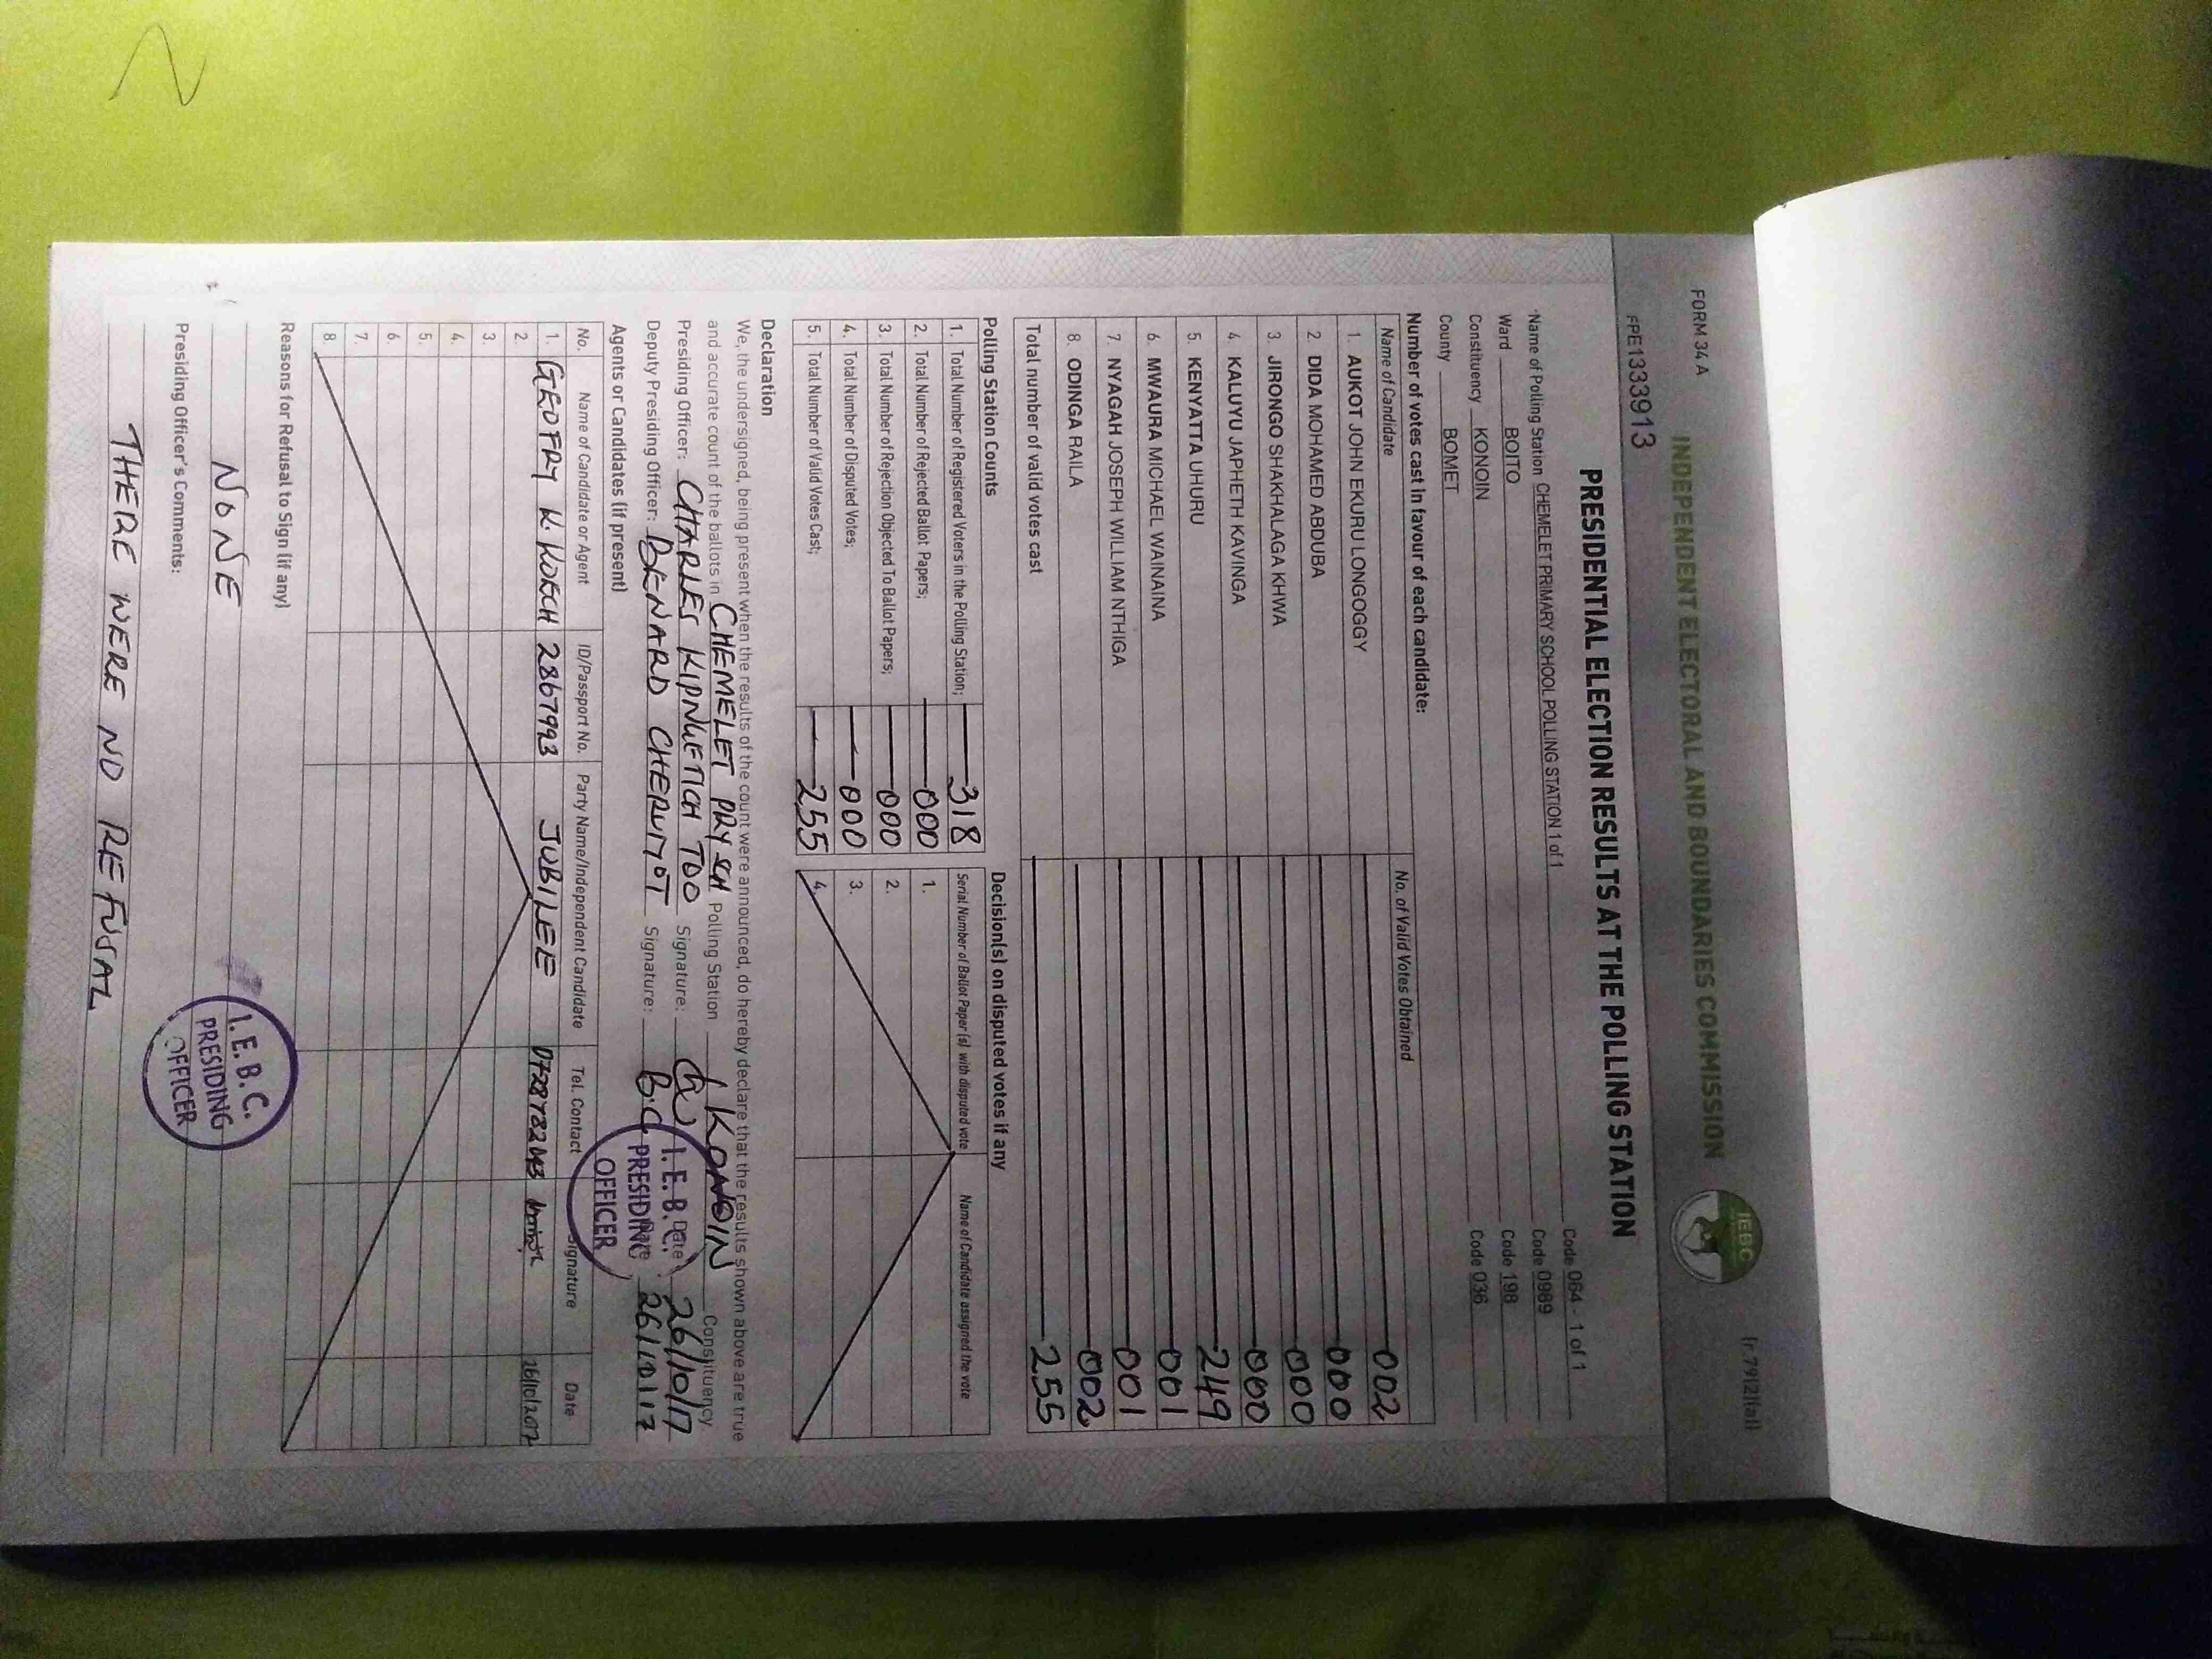 FORM 34 A
(r 79(2)(a))
INDEPENDENT ELECTORAL AND BOUNDARIES COMMISSION
IEBC
FPE1333913
PRESIDENTIAL ELECTION RESULTS AT THE POLLING STATION
*Name of Polling Station CHEMELET PRIMARY SCHOOL POLLING STATION 1 of 1 Code 064 - 1 of 1
Ward BOITO Code 0989
Constituency KONOIN Code 198
County BOMET Code 036
Number of votes cast in favour of each candidate:
Name of Candidate No. of Valid Votes Obtained
1. AUKOT JOHN EKURU LONGOGGY 002
2 DIDA MOHAMED ABDUBA 000
3. JIRONGO SHAKHALAGA KHWA 000
4 KALUYU JAPHETH KAVINGA 000
5 KENYATTA UHURU 249
6 MWAURA MICHAEL WAINAINA 001
7. NYAGAH JOSEPH WILLIAM NTHIGA 001
8. ODINGA RAILA 002
Total number of valid votes cast 255
Polling Station Counts
1. Total Number of Registered Voters in the Polling Station; 318
2. Total Number of Rejected Ballot Papers; 000
3. Total Number of Rejection Objected To Ballot Papers; 000
4. Total Number of Disputed Votes; 000
5. Total Number of Valid Votes Cast; 255
Decision(s) on disputed votes if any
Serial Number of Ballot Paper (s) with disputed vote Name of Candidate assigned the vote
1.
2.
3.
4.
Declaration
We, the undersigned, being present when the results of the count were announced, do hereby declare that the results shown above are true
and accurate count of the ballots in CHEMELET PRY SCH Polling Station KONOIN Constituency
Presiding Officer: CHARLES KIPNGETICH TOO Signature: Date 26/10/17
Deputy Presiding Officer: BENARD CHERUIYOT Signature: B.C Date 26/10/17
I. E. B. C.
PRESIDING
OFFICER
Agents or Candidates (if present)
No. Name of Candidate or Agent ID/Passport No. Party Name/Independent Candidate Tel. Contact Signature Date
1. GEOFRY K KOECH 22867993 JUBILEE 26/10/2017
2
3.
4.
5.
6.
7.
8.
Reasons for Refusal to Sign (if any)
NONE
Presiding Officer's Comments:
THERE WERE NO REFUSAL
I. E. B. C.
PRESIDING
OFFICER